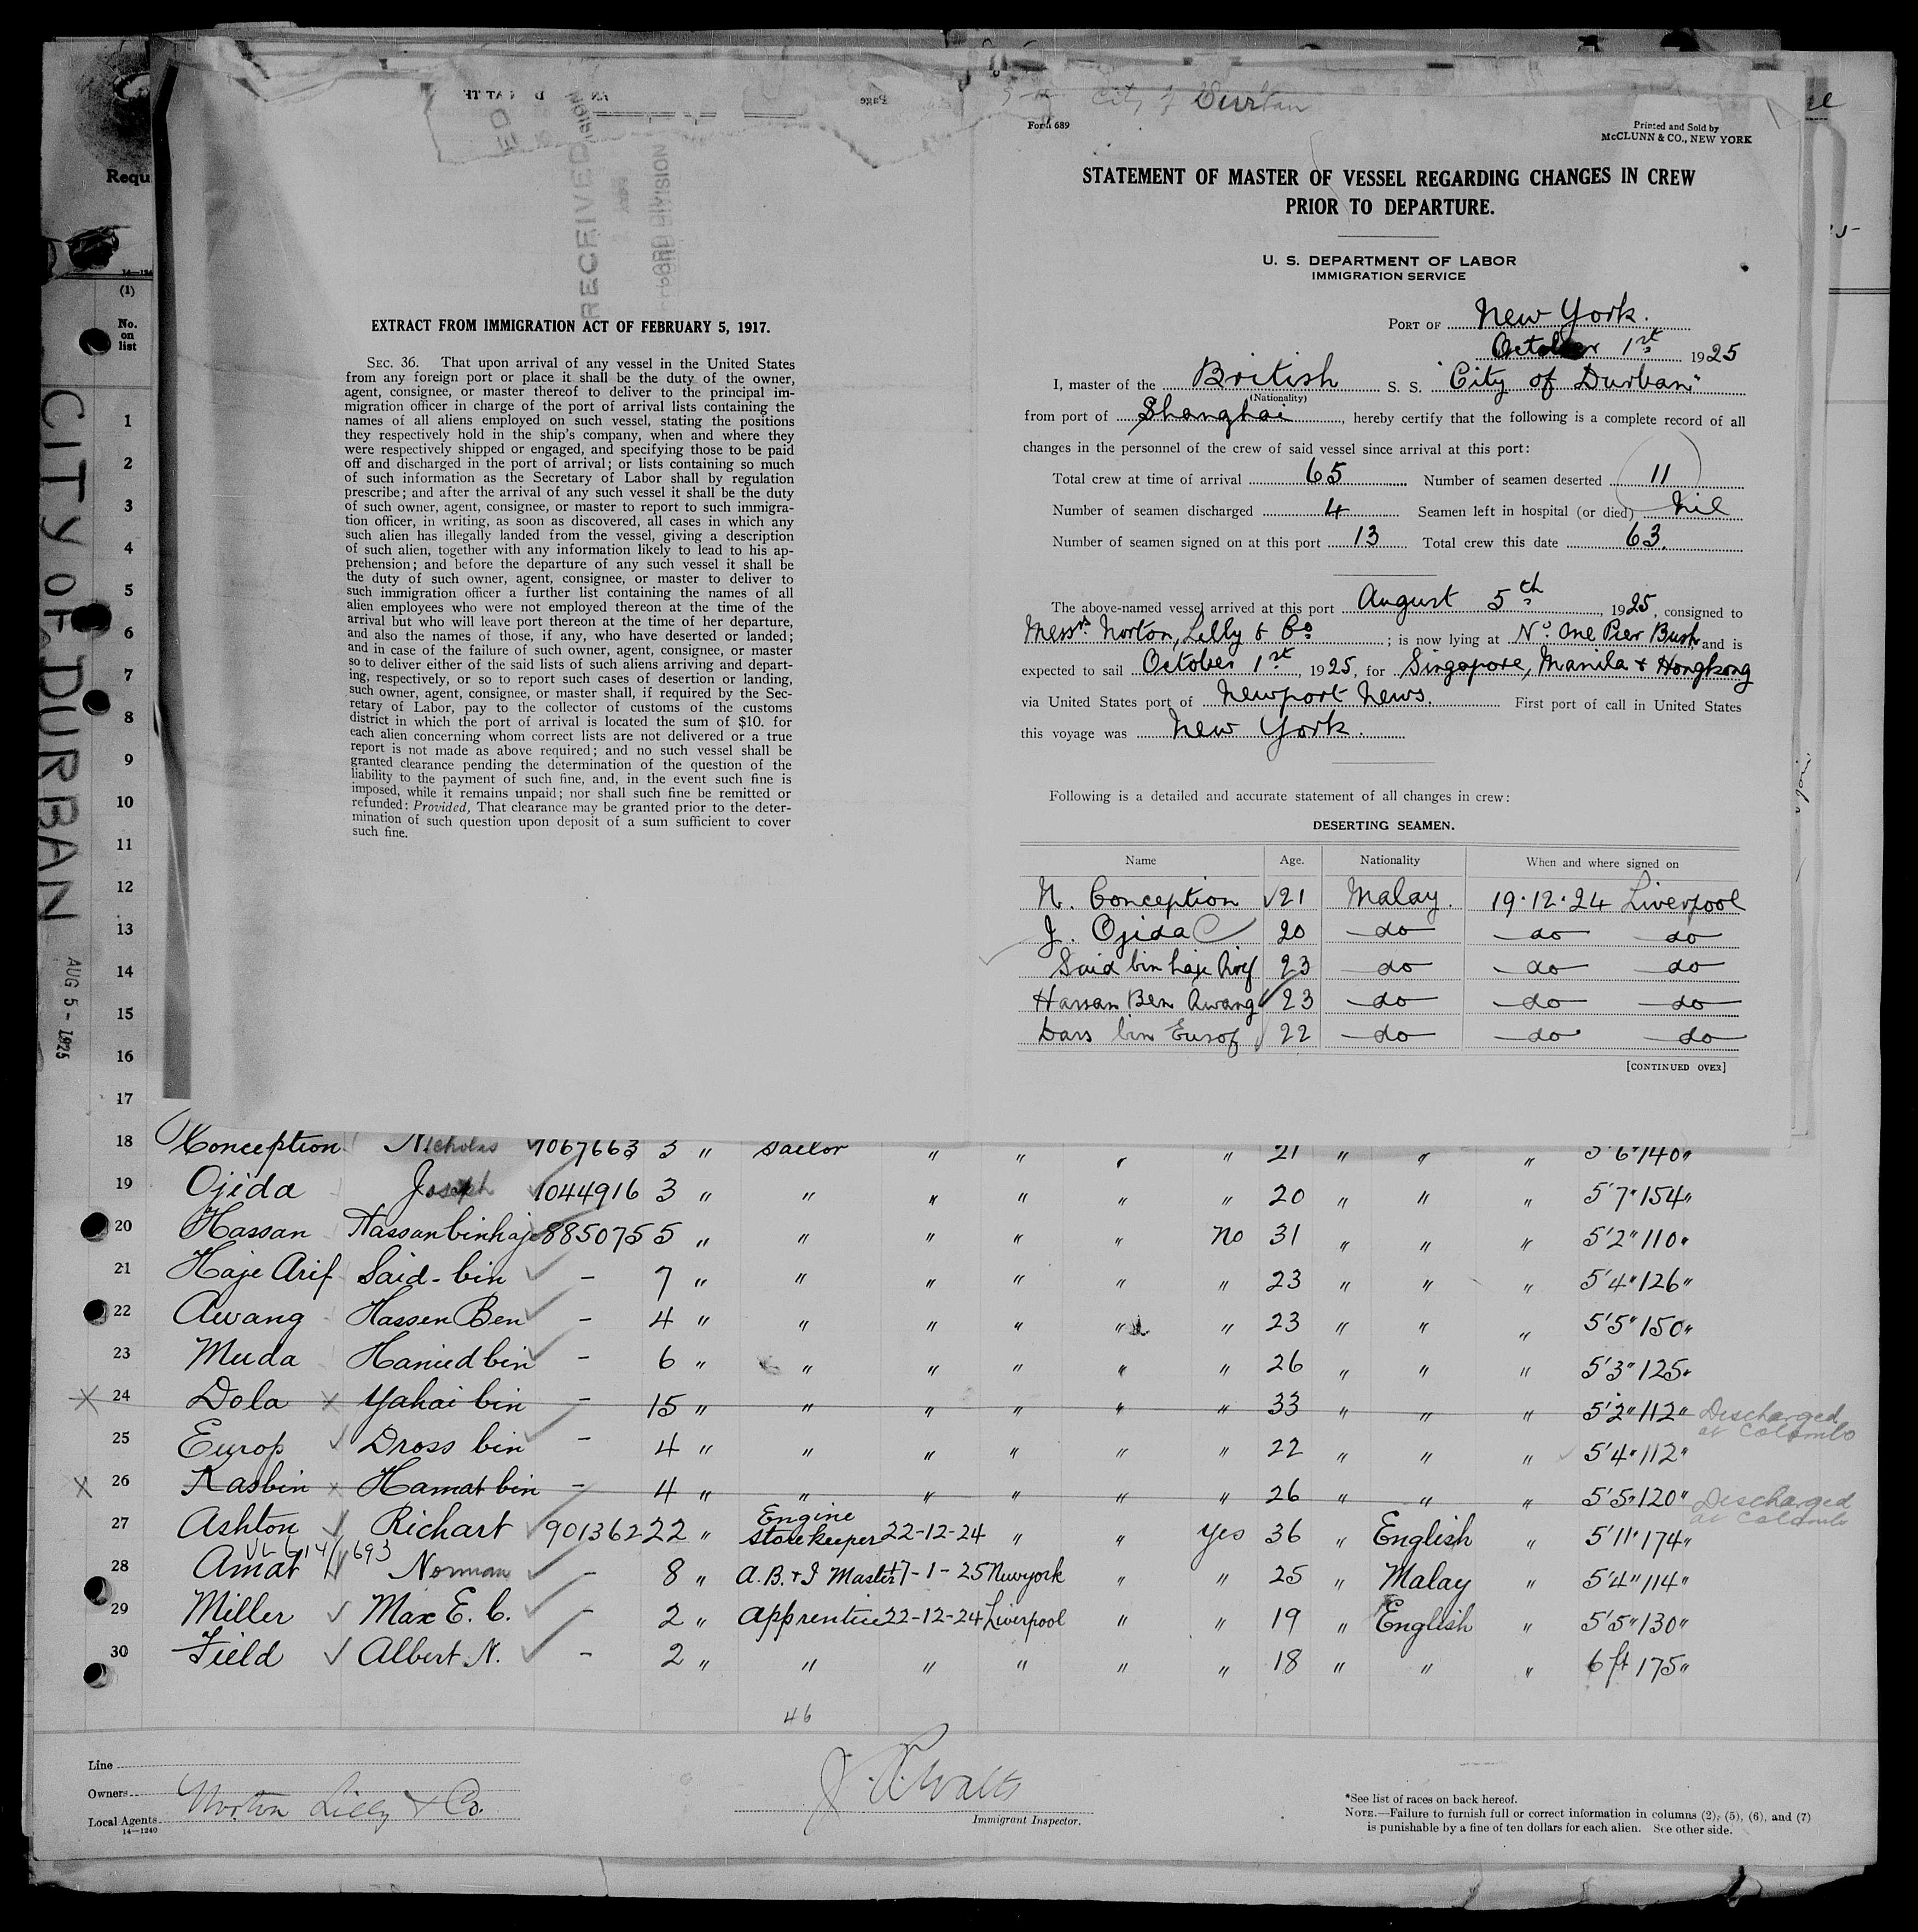 City of Durban
Form 689
Printed and Sold by
McCLUNN & CO., NEW YORK
STATEMENT OF MASTER OF VESSEL REGARDING CHANGES IN CREW
PRIOR TO DEPARTURE.
U. S. DEPARTMENT OF LABOR
IMMIGRATION SERVICE
PORT OF New York.
October 1st 1925
I, master of the British S. S. "City of Durban"
(Nationality)
from port of Shanghai, hereby certify that the following is a complete record of all
changes in the personnel of the crew of said vessel since arrival at this port:
Total crew at time of arrival 65 Number of seamen deserted 11
Number of seamen discharged 4 Seamen left in hospital (or died) Nil
Number of seamen signed on at this port 13 Total crew this date 63.
The above-named vessel arrived at this port August 5th, 1925, consigned to
Messrs. Norton, Lilly & Co; is now lying at No. One Pier Bush and is
expected to sail October 1st, 1925, for Singapore, Manila & Hongkong
via United States port of Newport News. First port of call in United States
this voyage was New York.
Following is a detailed and accurate statement of all changes in crew:
DESERTING SEAMEN.
Name Age. Nationality When and where signed on
N. Conception 21 Malay. 19.12.24 Liverpool
J. Ojida 20 do do do
Said bin haje Arif 23 do do do
Hassan Ben Awang 23 do do do
Dars bin Eurof 22 do do do
[CONTINUED OVER]
RECEIVED
EXTRACT FROM IMMIGRATION ACT OF FEBRUARY 5, 1917.
SEC. 36. That upon arrival of any vessel in the United States
from any foreign port or place it shall be the duty of the owner,
agent, consignee, or master thereof to deliver to the principal im-
migration officer in charge of the port of arrival lists containing the
names of all aliens employed on such vessel, stating the positions
they respectively hold in the ship's company, when and where they
were respectively shipped or engaged, and specifying those to be paid
off and discharged in the port of arrival; or lists containing so much
of such information as the Secretary of Labor shall by regulation
prescribe; and after the arrival of any such vessel it shall be the duty
of such owner, agent, consignee, or master to report to such immigra-
tion officer, in writing, as soon as discovered, all cases in which any
such alien has illegally landed from the vessel, giving a description
of such alien, together with any information likely to lead to his ap-
prehension; and before the departure of any such vessel it shall be
the duty of such owner, agent, consignee, or master to deliver to
such immigration officer a further list containing the names of all
alien employees who were not employed thereon at the time of the
arrival but who will leave port thereon at the time of her departure,
and also the names of those, if any, who have deserted or landed;
and in case of the failure of such owner, agent, consignee, or master
so to deliver either of the said lists of such aliens arriving and depart-
ing, respectively, or so to report such cases of desertion or landing,
such owner, agent, consignee, or master shall, if required by the Sec-
retary of Labor, pay to the collector of customs of the customs
district in which the port of arrival is located the sum of $10. for
each alien concerning whom correct lists are not delivered or a true
report is not made as above required; and no such vessel shall be
granted clearance pending the determination of the question of the
liability to the payment of such fine, and, in the event such fine is
imposed, while it remains unpaid; nor shall such fine be remitted or
refunded: Provided, That clearance may be granted prior to the deter-
mination of such question upon deposit of a sum sufficient to cover
such fine.
Requ
(1)
No.
on
list
CITY OF DURBAN
AUG 5 - 1925
1
2
3
4
5
6
7
8
9
10
11
12
13
14
15
16
17
18 Conception Nicholas 1067663 3 " Sailor " " " " 21 " " " 5'6" 140"
19 Ojida Joseph 1044916 3 " " " " " " 20 " " " 5'7" 154"
20 Hassan Hassan bin haje 885075 5 " " " " " No 31 " " " 5'2" 110"
21 Haje Arif Said-bin - 7 " " " " " " 23 " " " 5'4" 126"
22 Awang Hassen Ben - 4 " " " " " " 23 " " " 5'5" 150"
23 Muda Hamid bin - 6 " " " " " " 26 " " " 5'3" 125"
24 Dola Yahai bin - 15 " " " " " " 33 " " " 5'2" 112" Discharged at Colombo
25 Europ Dross bin - 4 " " " " " " 22 " " " 5'4" 112"
26 Kasbin Hamat bin - 4 " " " " " " 26 " " " 5'5" 120" Discharged at Colombo
27 Ashton Richart 901362 22 " Engine Storekeeper 22-12-24 " " Yes 36 " English " 5'11" 174"
28 Amat Norman - 8 " A.B. & J Master 17-1-25 Newyork " " 25 " Malay " 5'4" 114"
29 Miller Max E. C. - 2 " Apprentice 22-12-24 Liverpool " " 19 " English " 5'5" 130"
30 Field Albert N. - 2 " " " " " " 18 " " " 6 ft 175"
46
Line
Owners
Local Agents Norton Lilly & Co.
14—1240
Immigrant Inspector.
*See list of races on back hereof.
NOTE.—Failure to furnish full or correct information in columns (2), (5), (6), and (7)
is punishable by a fine of ten dollars for each alien. See other side.